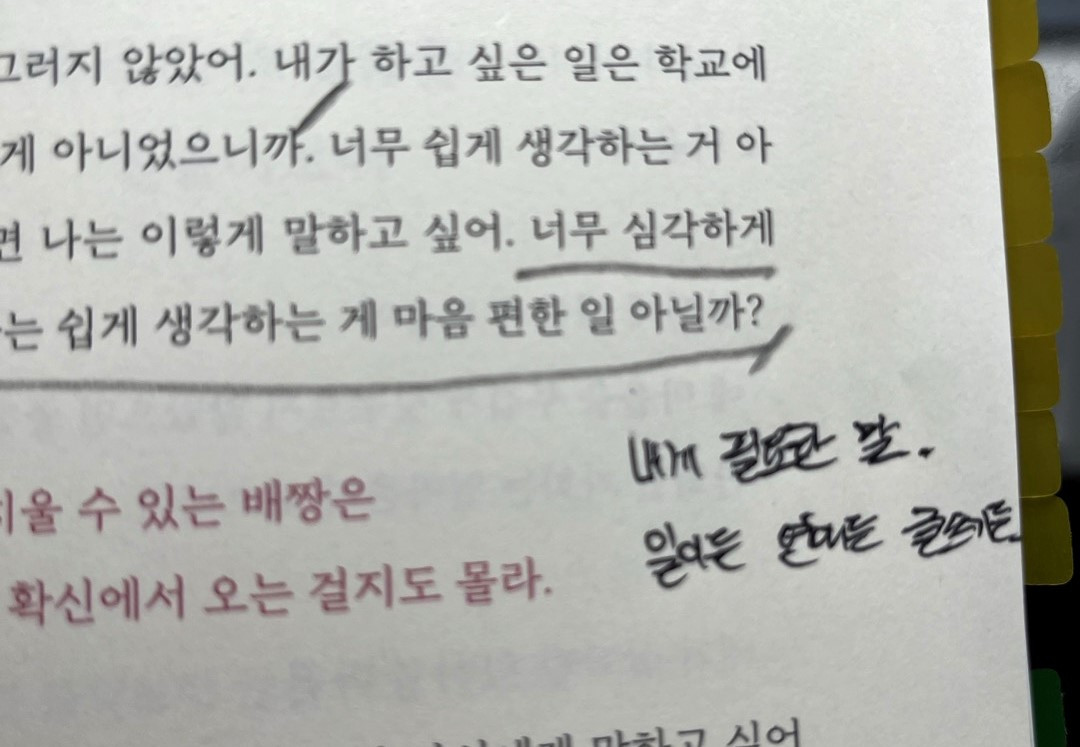 그러지 않았어. 내가 하고 싶은 일은 학교에
게 아니었으니까. 너무 쉽게 생각하는 거 아
면 나는 이렇게 말하고 싶어. 너무 심각하게
는 쉽게 생각하는 게 마음 편한 일 아닐까?
내게 필요한 말.
치울 수 있는 배짱은
일이든 연애든 글쓰기든.
확신에서 오는 걸지도 몰라.
말하고 싶어